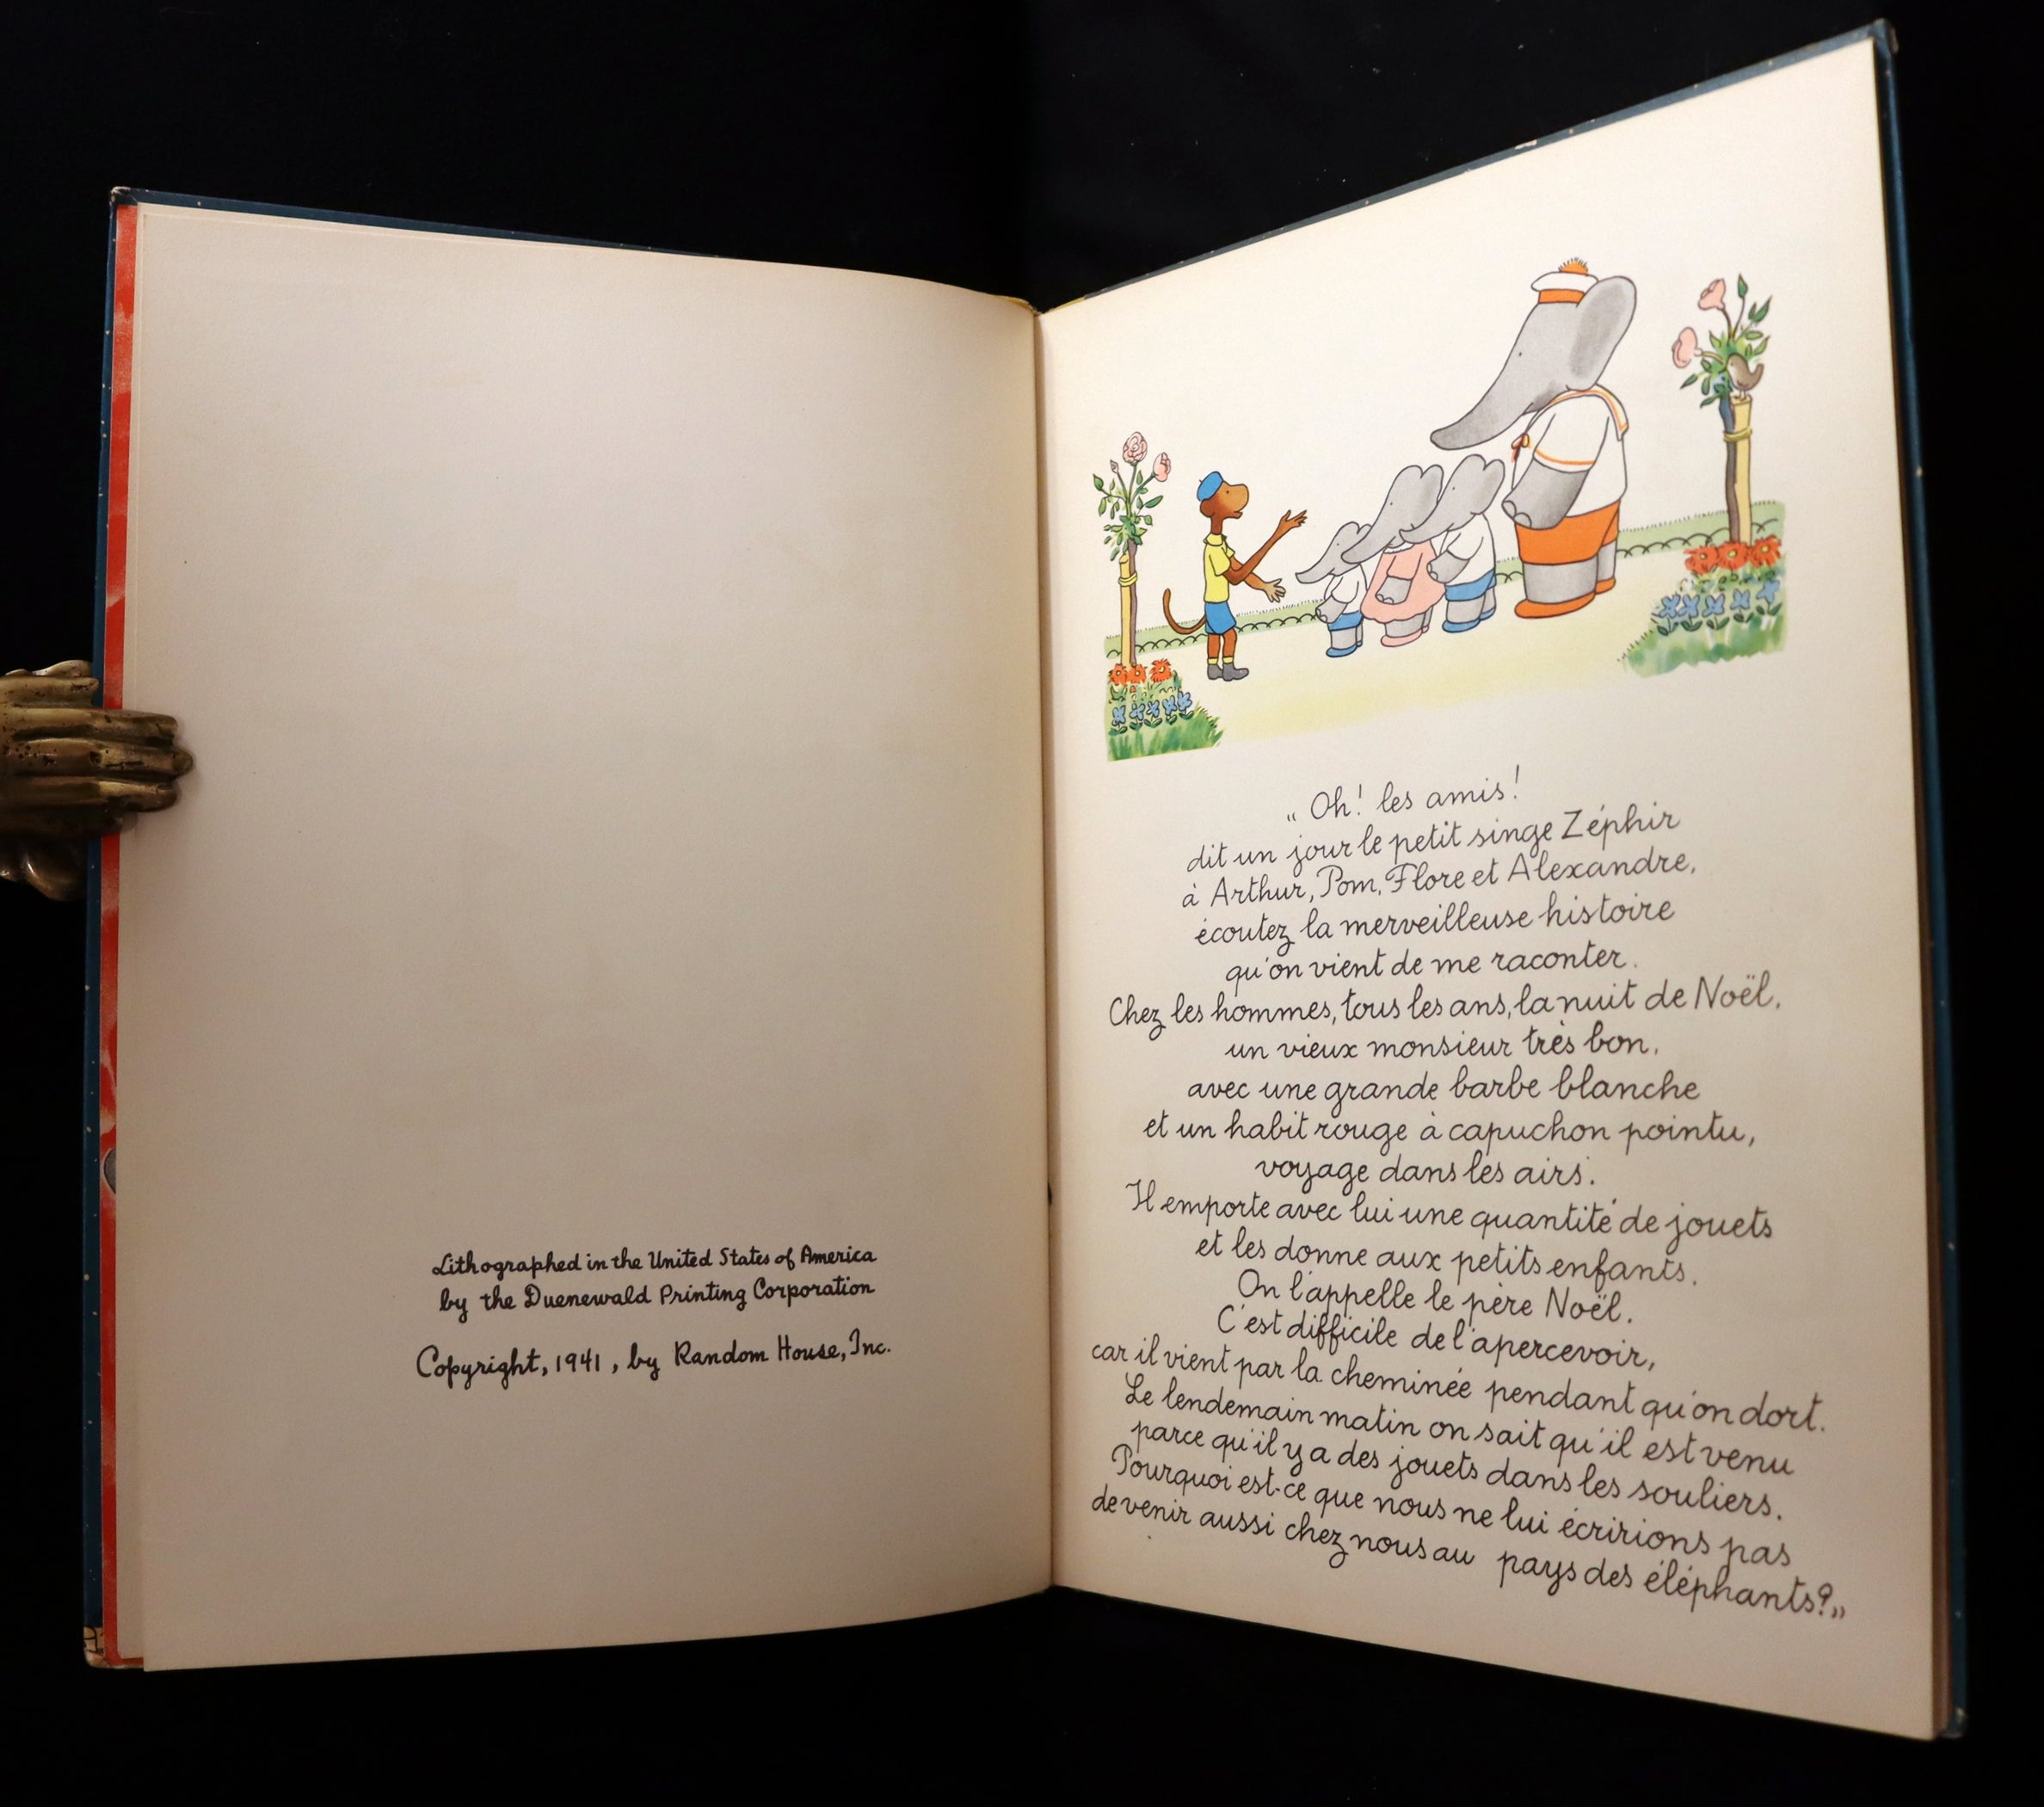 Lithographed in the United States of America
by the Duenewald Printing Corporation
Copyright, 1941, by Random House, Inc.
„ Oh! les amis!
dit un jour le petit singe Zéphir
à Arthur, Pom, Flore et Alexandre,
écoutez la merveilleuse histoire
qu'on vient de me raconter.
Chez les hommes, tous les ans, la nuit de Noël,
un vieux monsieur très bon,
avec une grande barbe blanche
et un habit rouge à capuchon pointu,
voyage dans les airs.
Il emporte avec lui une quantité de jouets
et les donne aux petits enfants.
On l'appelle le père Noël.
C'est difficile de l'apercevoir,
car il vient par la cheminée pendant qu'on dort.
Le lendemain matin on sait qu'il est venu
parce qu'il y a des jouets dans les souliers.
Pourquoi est-ce que nous ne lui écririons pas
de venir aussi chez nous au pays des éléphants?„